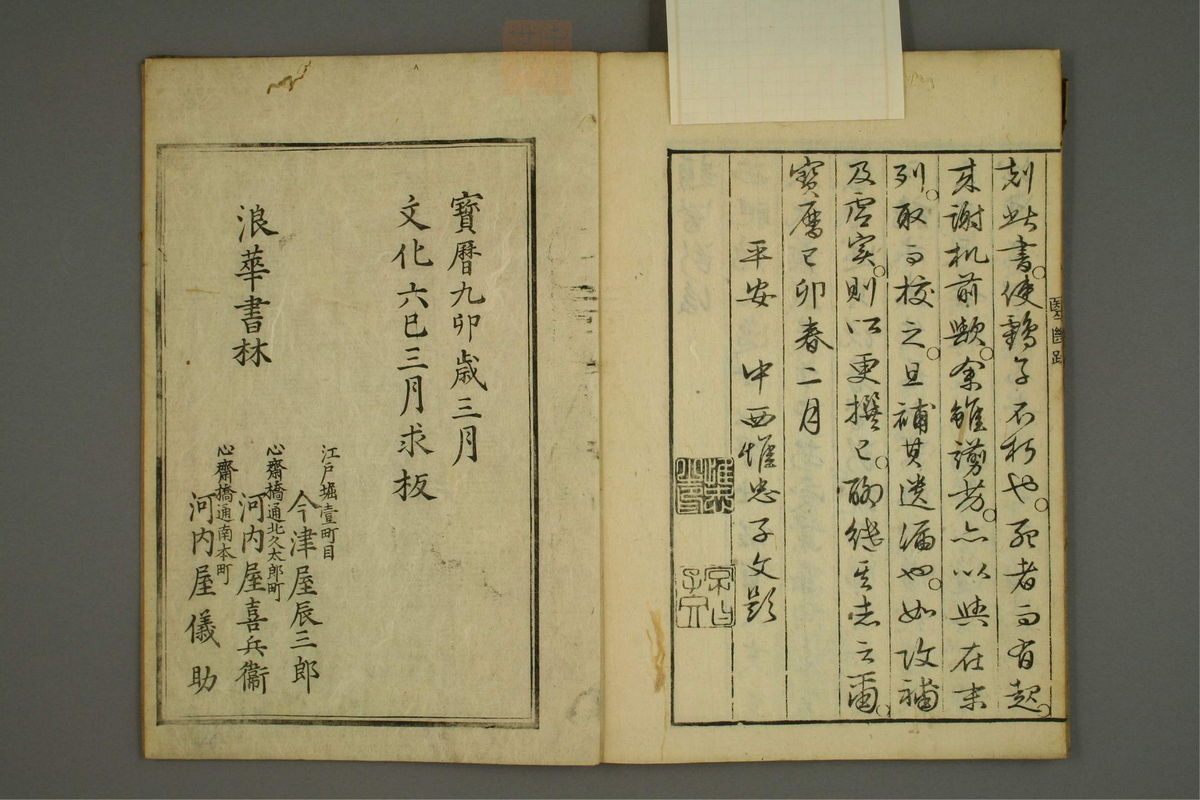 醫断跋
刻此書。使鶴子不朽也。死者而有起。
来謝机前歟。余雖謭劣。亦以與在末
列。取而校之。且補其遺漏也。如攻補
及虚実。則以更撰已。聊継其志云爾。
寶暦己卯春二月
平安 中西惟忠子文題
字曰子文
寳暦九卯歳三月
文化六巳三月求板
浪華書林
江戸堀壹町目
今津屋辰三郎
心齋橋通北久太郎町
河内屋喜兵衞
心齋橋通南本町
河内屋儀助